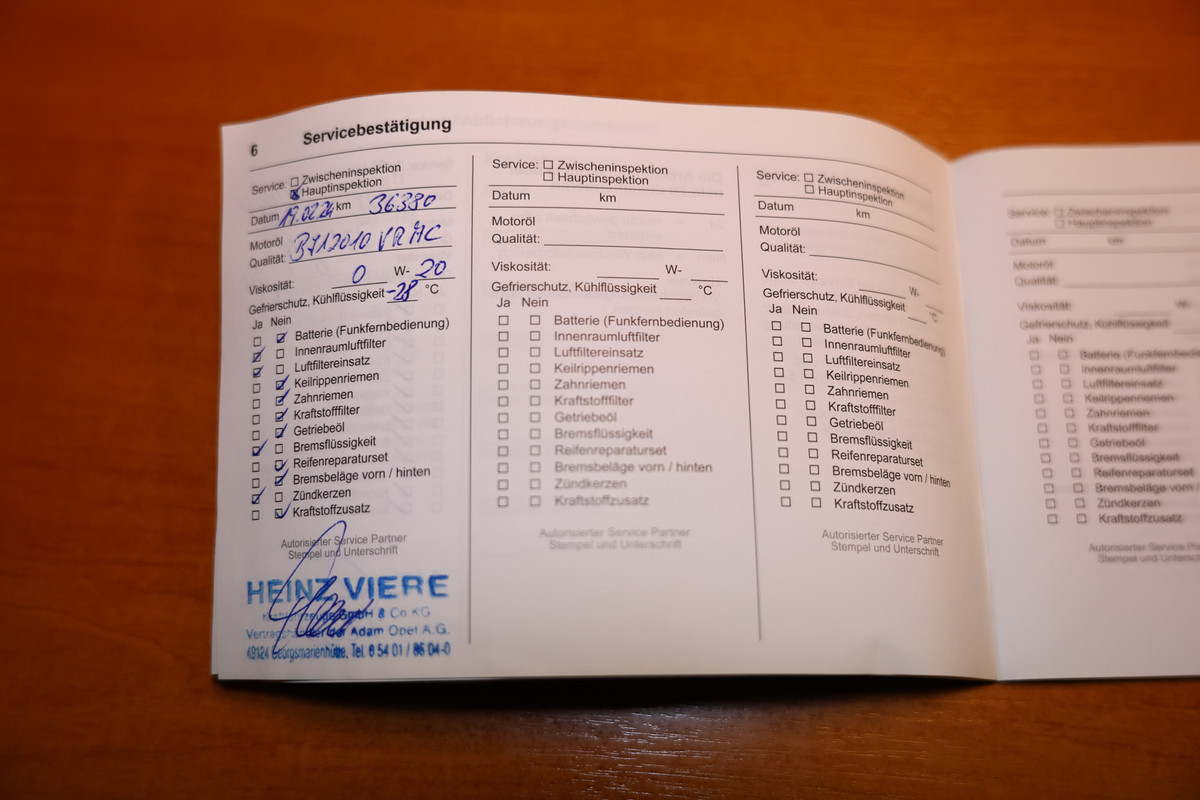 6 Servicebestätigung
Service: Zwischeninspektion
Hauptinspektion
Datum 19.02.24 km 36380
Motoröl
Qualität: B712010 VRMC
Viskosität: 0 W- 20
Gefrierschutz, Kühlflüssigkeit -28 °C
Ja Nein
Batterie (Funkfernbedienung)
Innenraumluftfilter
Luftfiltereinsatz
Keilrippenriemen
Zahnriemen
Kraftstofffilter
Getriebeöl
Bremsflüssigkeit
Reifenreparaturset
Bremsbeläge vorn / hinten
Zündkerzen
Kraftstoffzusatz
Autorisierter Service Partner
Stempel und Unterschrift
HEINZ VIERE
GmbH & Co KG
der Adam Opel A.G.
49124 Georgsmarienhütte, Tel. 0 54 01 / 86 04-0
Service: Zwischeninspektion
Hauptinspektion
Datum km
Motoröl
Qualität:
Viskosität: W-
Gefrierschutz, Kühlflüssigkeit °C
Ja Nein
Batterie (Funkfernbedienung)
Innenraumluftfilter
Luftfiltereinsatz
Keilrippenriemen
Zahnriemen
Kraftstofffilter
Getriebeöl
Bremsflüssigkeit
Reifenreparaturset
Bremsbeläge vorn / hinten
Zündkerzen
Kraftstoffzusatz
Autorisierter Service Partner
Stempel und Unterschrift
Service: Zwischeninspektion
Hauptinspektion
Datum km
Motoröl
Qualität:
Viskosität: W-
Gefrierschutz, Kühlflüssigkeit °C
Ja Nein
Batterie (Funkfernbedienung)
Innenraumluftfilter
Luftfiltereinsatz
Keilrippenriemen
Zahnriemen
Kraftstofffilter
Getriebeöl
Bremsflüssigkeit
Reifenreparaturset
Bremsbeläge vorn / hinten
Zündkerzen
Kraftstoffzusatz
Autorisierter Service Partner
Stempel und Unterschrift
Service: Zwischeninspektion
Hauptinspektion
Datum km
Motoröl
Qualität:
Viskosität: W-
Gefrierschutz, Kühlflüssigkeit
Ja Nein
Batterie (Funkfernbedie
Innenraumluftfilter
Luftfiltereinsatz
Keilrippenriemen
Zahnriemen
Kraftstofffilter
Getriebeöl
Bremsflüssigkeit
Reifenreparaturset
Bremsbeläge vorn /
Zündkerzen
Kraftstoffzusatz
Autorisierter Service Pa
Stempel und Unterschr